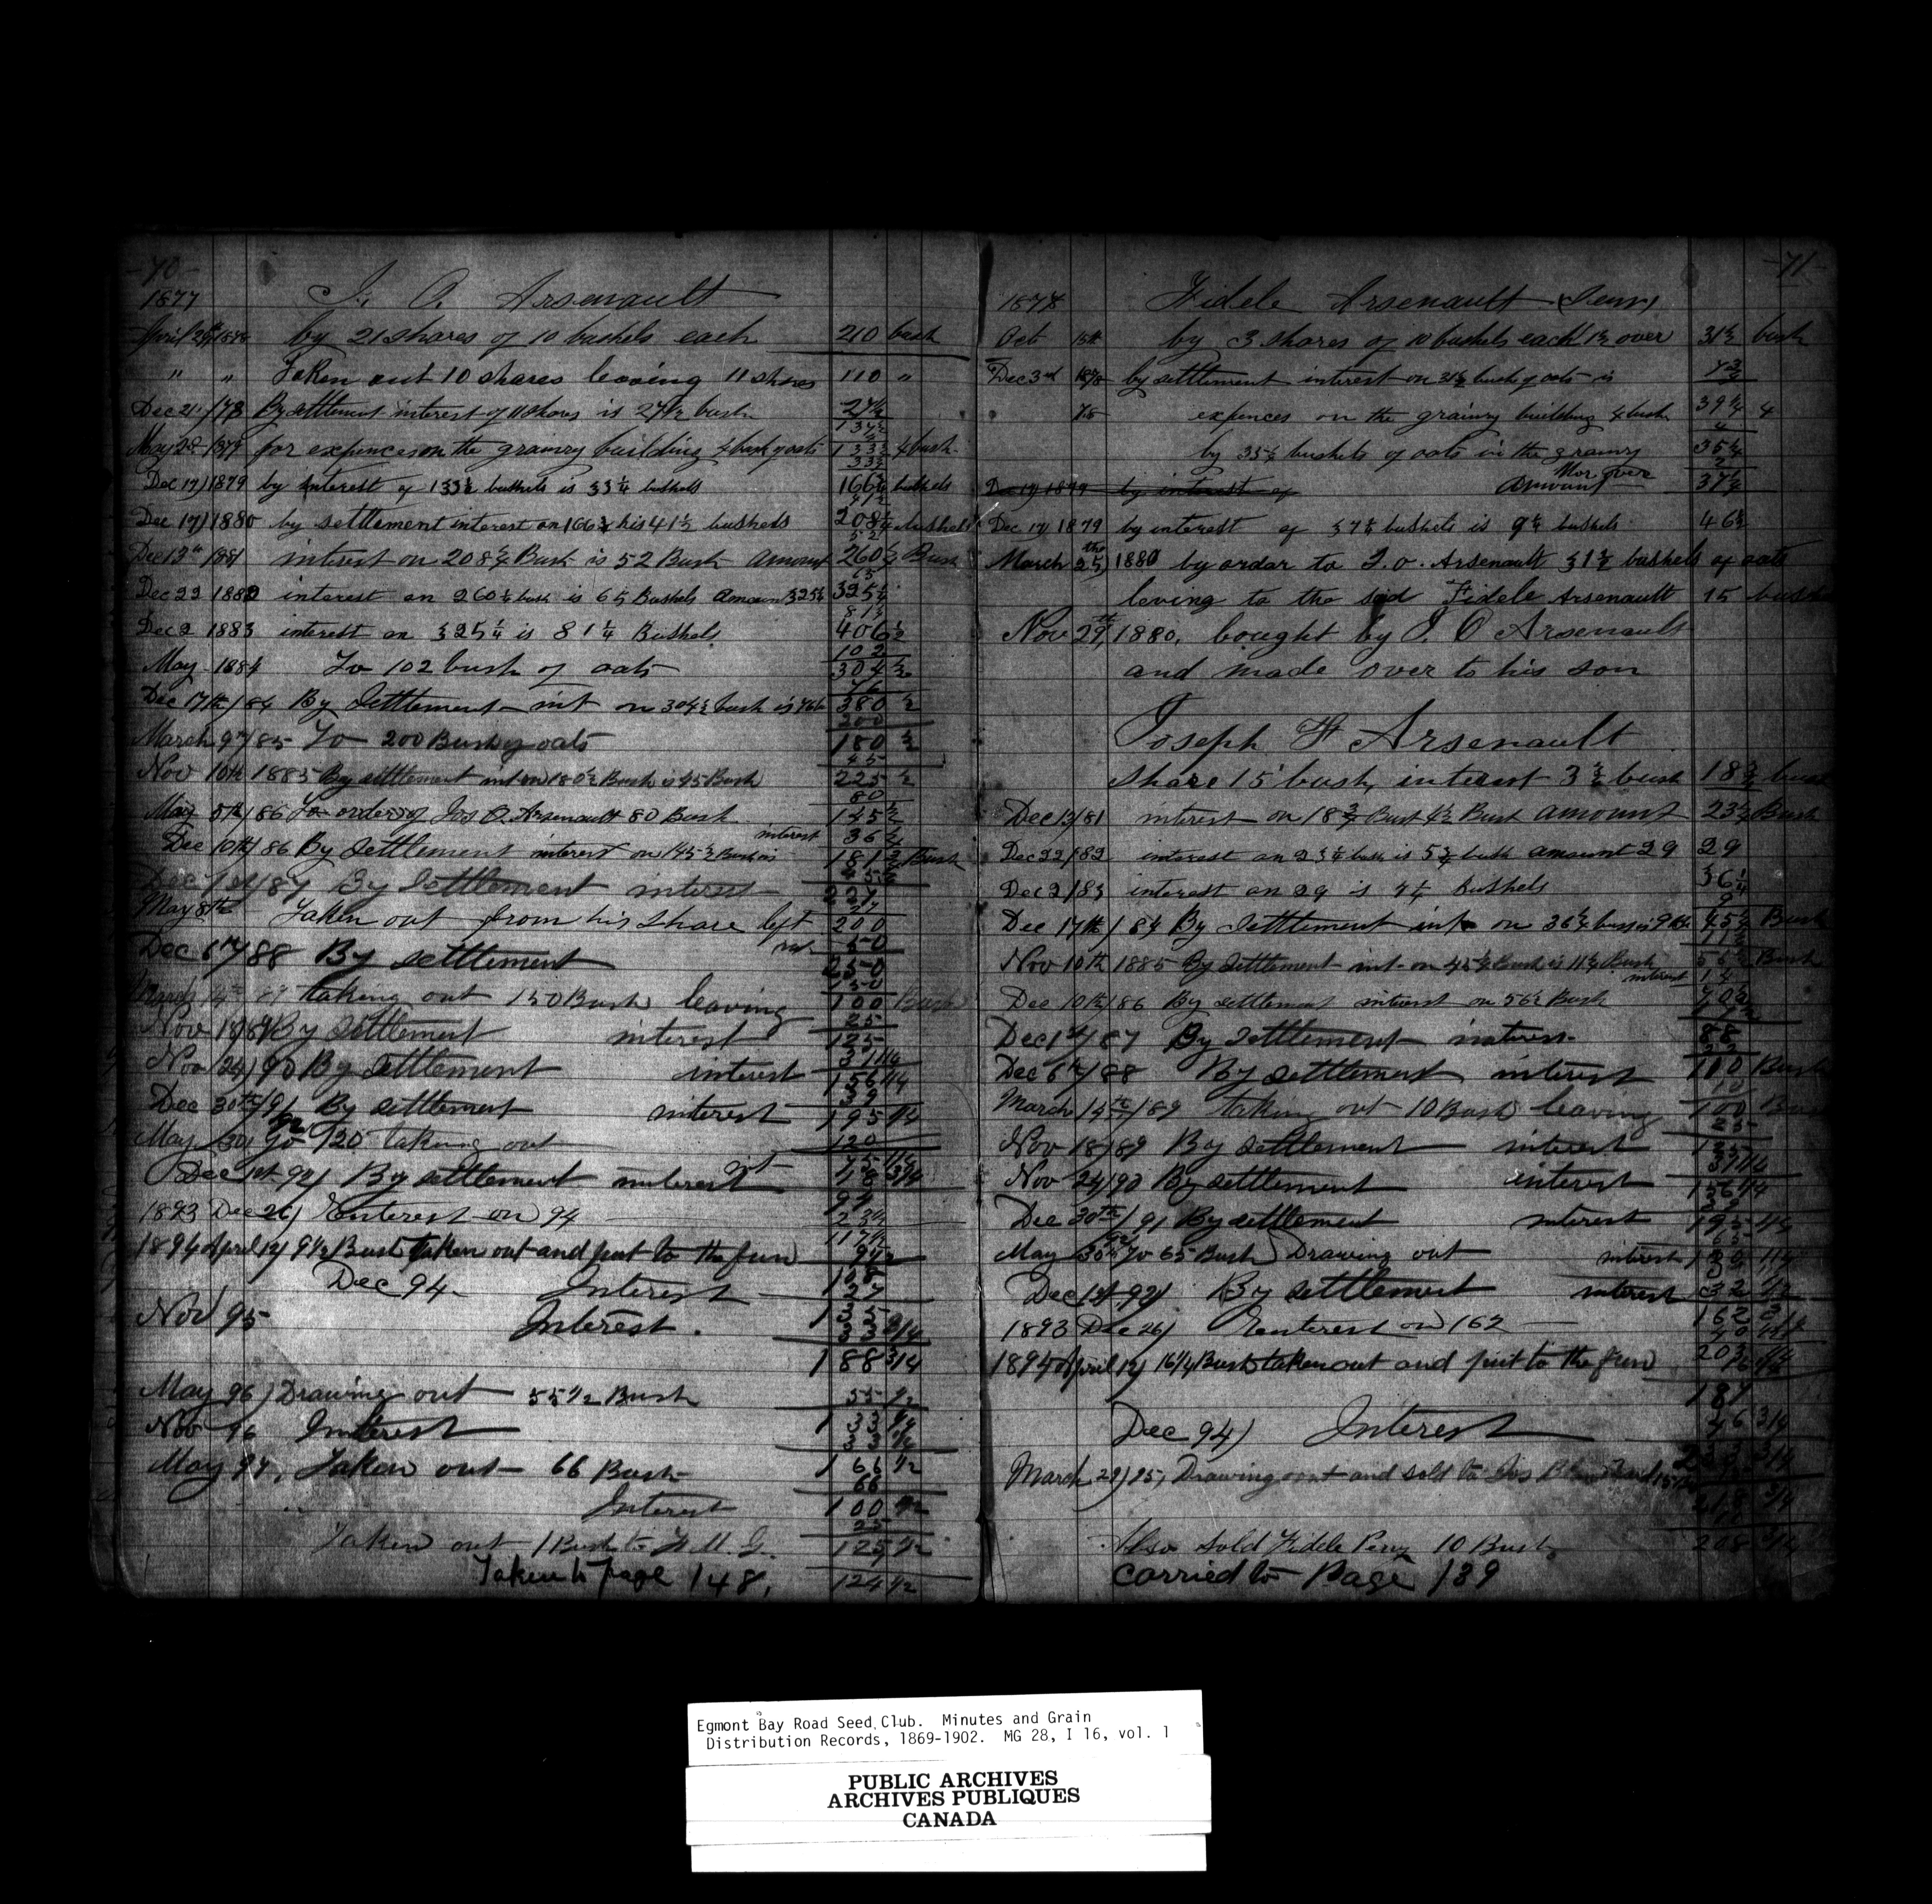 -70-
1877 J. O. Arsenault
April 29th 1878 by 21 shares of 10 bushels each 210 bush
" " Taken out 10 shares leaving 11 shares 110 "
Dec 21 /78 By settlement interest of 11 shares is 27½ bush 27½
137½
4
May 28 1879 for expences on the grainry building 4 bush of oats 133½ 4 bush
33½
Dec 17) 1879 by interest of 133½ bushels is 33¼ bushels 166¾ bushels
41½
Dec 17) 1880 by settlement interest on 166¾ his 41½ bushels 208¼ bushels
52
Dec 13th 1881 interest on 208¼ Bush is 52 Bush amount 260¼ Bush
65
Dec 22 1882 interest on 260¼ bush is 65 Bushels amount 325¼ 325¼
81¼
Dec 2 1883 interest on 325¼ is 81¼ Bishels 406½
102
May 1884 To 102 bush of oats 304½
76
Dec 17th /84 By Settlement int on 304½ bush is 76 b 380 ½
200
March 9th /85 To 200 Bush of oats 180 ½
45
Nov 10th 1885 By settlement int on 180½ Bush is 45 Bush 225 ½
80
May 5th /86 To order of Jos O. Arsenault 80 Bush 145½
interest 36¼
Dec 10th /86 By Settlement interest on 145½ Bush is 181¾ Bush
Dec 1st /87 By Settlement interest 227
27
May 8th Taken out from his share left 200
int 50
Dec 6th /88 By settlement 250
150
March 14th 89 taking out 150 Bush leaving 100 Bush
25
Nov 18/89 By Settlement interest 125
31 1/4
Nov 24) 90 By Settlement interest 156 1/4
39
Dec 30th /91 By settlement interest 195 1/4
92
May 30) To 120 taking out 120
75 1/4
Dec 1st 92) By settlement interest int 18 3/4
94
1893 Dec 26) Enterest on 94 23½
117½
1894 April 12) 9½ Bush taken out and put to the fun 9½
108
Dec 94. Interest 27
135
Nov 95 Interest. 33 3/4
188 3/4
May 96) Drawing out 55 1/2 Bush 55 1/2
133 1/4
Nov 96 Interest 33 1/4
166 1/2
May 97. Taken out 66 Bush 66
100 1/2
Interest 25
Taken out 1 Bush to 125 1/2
Taken to Page 148. 124 1/2
-71-
1878 Fidele Arsenault (Senr)
Oct 15th by 3 shares of 10 bushels each 1½ over 31½ bush
Dec 3rd 1878 by settlement interest on 31½ bush of oats is 7¾
78 expences on the grainry building 4 bush 39¼ 4
4
by 35¼ bushels of oats in the grainry 35¼
2
Mor over
Dec 17 1879 by interest of Amount 37¼
Dec 17 1879 by interest of 37¼ bushels is 9¼ bushels 46½
March 25th, 1880 by ordar to J. O. Arsenault 31½ bushels of oats
leving to the sed Fidele Arsenault 15 bush
Nov 29th, 1880. bought by J. O Arsenault
and made over to his son
Joseph F Arsenault
Share 15 bush, interest 3¾ bush 18¾ bush
Dec 13/81 interest on 18¾ Bush 4½ Bush amount 23¼ Bush
Dec 22/82 interest on 23¼ bush is 5¾ bush amount 29 29
Dec 2/83 interest on 29 is 7¼ bushels 36¼
9
Dec 17th /84 By Settlement int on 36¼ bush is 9 bu 45¼ Bush
11¼
Nov 10th 1885 By Settlement int on 45¼ Bush is 11¼ Bush 56½ Bush
interest 14
Dec 10th /86 By settlement interest on 56½ Bush 70½
17½
Dec 1st /87 By Settlement interest 88
22
Dec 6th /88 By settlement interest 110 Bush
10
March 14th /89 taking out 10 Bush leaving 100 Bush
25
Nov 18/89 By Settlement interest 125
31 1/4
Nov 24/90 By settlement interest 156 1/4
39
Dec 30th /91 By settlement interest 195 1/4
65
92
May 30th To 65 Bush Drawing out interest 130 1/4
Dec 1st 92) By settlement interest 32 1/2
162 3/4
1893 Dec 26) Enterest on 162 40
203
1894 April 12) 16 1/4 Bush taken out and put to the fun 16 1/4
187
Dec 94) Interest 46 3/4
233 3/4
March 29) 95, Drawing out and sold to Jos
218 3/4
Also Sold Fidele Perry 10 Bush 208 3/4
Carried to Page 139
Egmont Bay Road Seed Club. Minutes and Grain
Distribution Records, 1869-1902. MG 28, I 16, vol. 1
PUBLIC ARCHIVES
ARCHIVES PUBLIQUES
CANADA